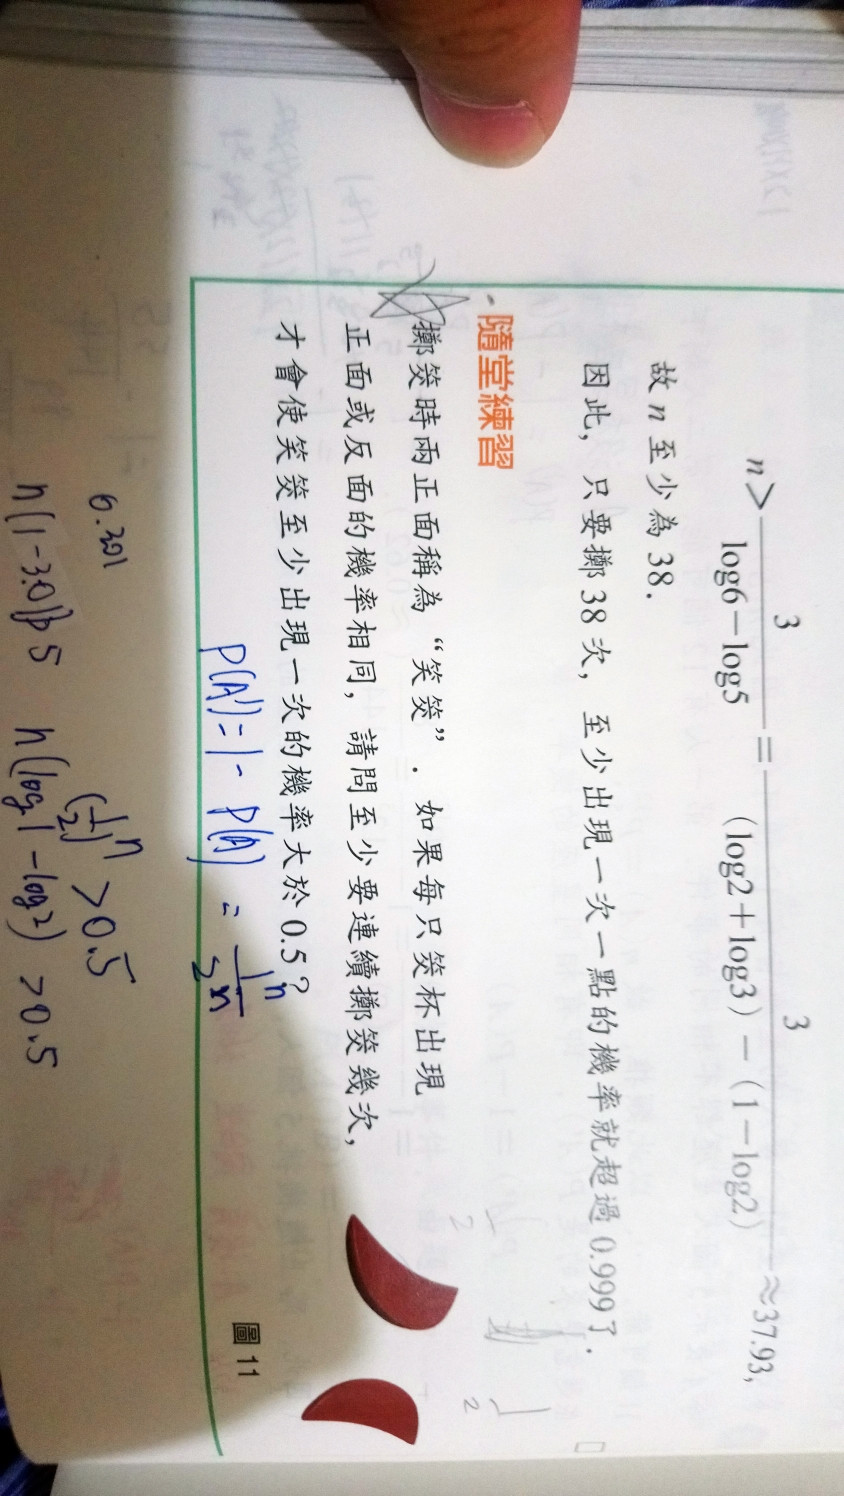 n > 3/(log6−log5) = 3/((log2+log3)−(1−log2)) ≈ 37.93,
故 n 至少為 38.
因此, 只要擲 38 次, 至少出現一次一點的機率就超過 0.999了.
隨堂練習
擲筊時兩正面稱為 “笑筊”. 如果每只筊杯出現
正面或反面的機率相同, 請問至少要連續擲筊幾次,
才會使笑筊至少出現一次的機率大於 0.5?
圖 11
P(A')=1-P(A) = 1^n/2^n
(1/2)^n > 0.5
n(log1-log2) > 0.5
1/2
1/2